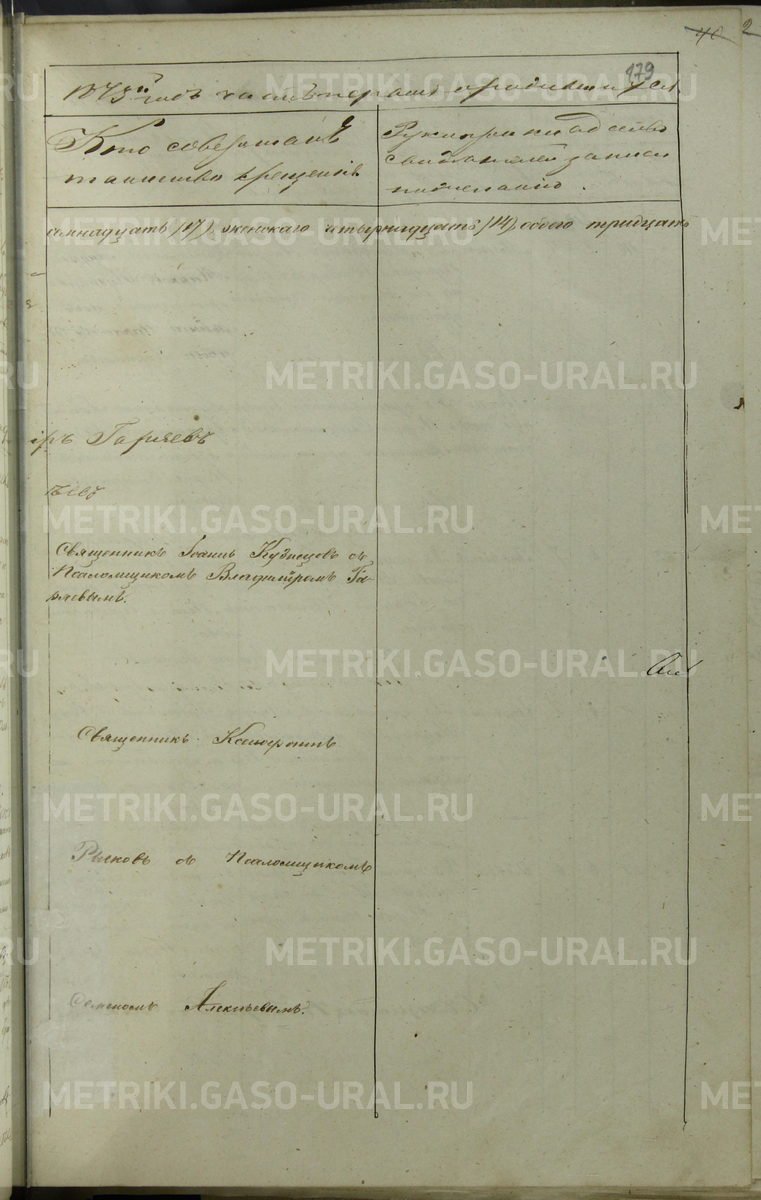 40 2
179
1875й годъ часть первая о родившихся.
Кто совершалъ
таинство крещенія
Рукоприкладство
свидѣтелей записи
по желанію.
емнадцать (17) женскаго четырнадцать (14) обоего тридцать
иръ Гаряевъ
Священникъ Іоаннъ Кузнецовъ съ
Псаломщикомъ Владиміромъ Га-
ряевымъ.
Священникъ
Рыковъ съ Псаломщикомъ
Семеномъ Алексѣевымъ.
METRIKI.GASO-URAL.RU